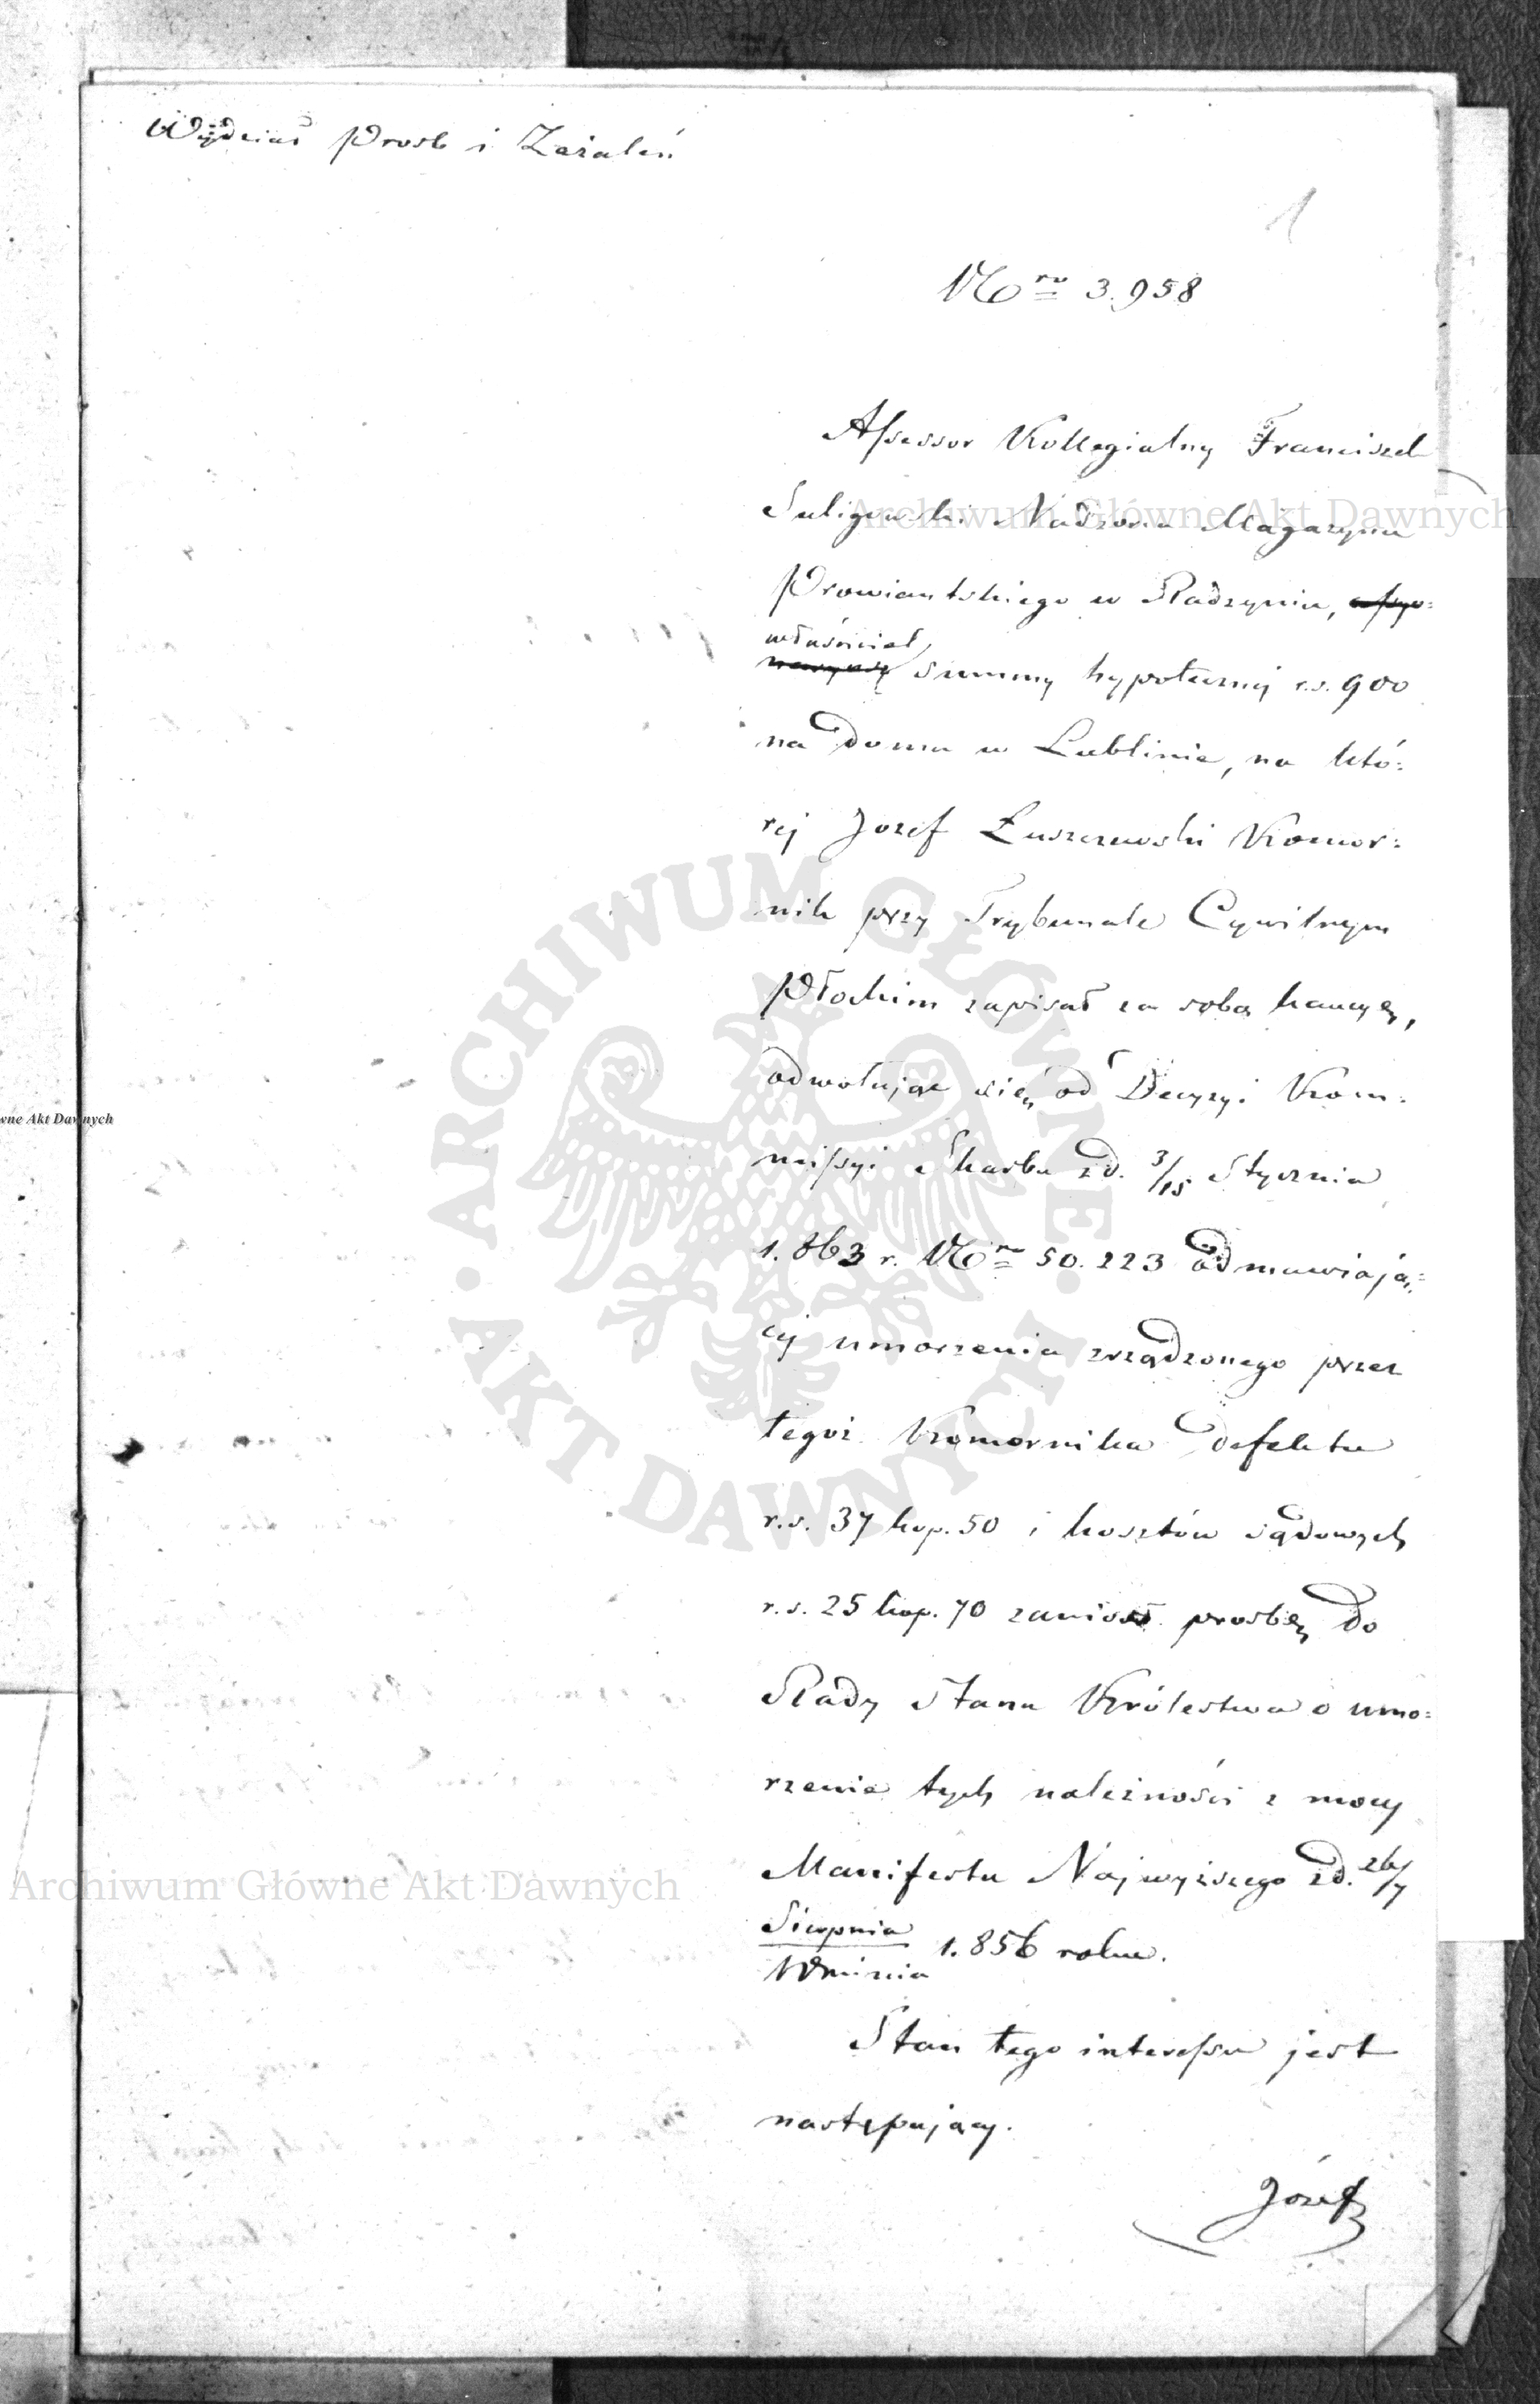 Wydział Prośb i Zażaleń
1
Nro 3.958
Assessor Kollegialny Franciszek
Suligowski Nadzorca Magazynu
Prowiantskiego w Radzyniu,
właściciel summy hypotecznej r.s. 900
na domu w Lublinie, na któ=
rej Jozef Łuszczewski Komor=
nik przy Trybunale Cywilnym
Płockim zapisał za sobą kaucyę,
odwołując się od Decyzyi Kom=
missyi Skarbu z d. 3/15 Stycznia
1.863 r. Nro 50.223 odmawiają=
cej umorzenia zrządzonego przez
tegoż Komornika defektu
r.s. 37 kop. 50 i kosztów sądowych
r.s. 25 kop. 70 zaniósł prosbę do
Rady Stanu Królestwa o umo=
rzenie tych należności z mocy
Manifestu Najwyższego z d. 26/7
Sierpnia
Września 1.856 roku.
Stan tego interessu jest
następujący.
Józef
Archiwum Główne Akt Dawnych
ARCHIWUM GŁÓWNE · AKT DAWNYCH ·
wne Akt Dawnych
Archiwum Główne Akt Dawnych